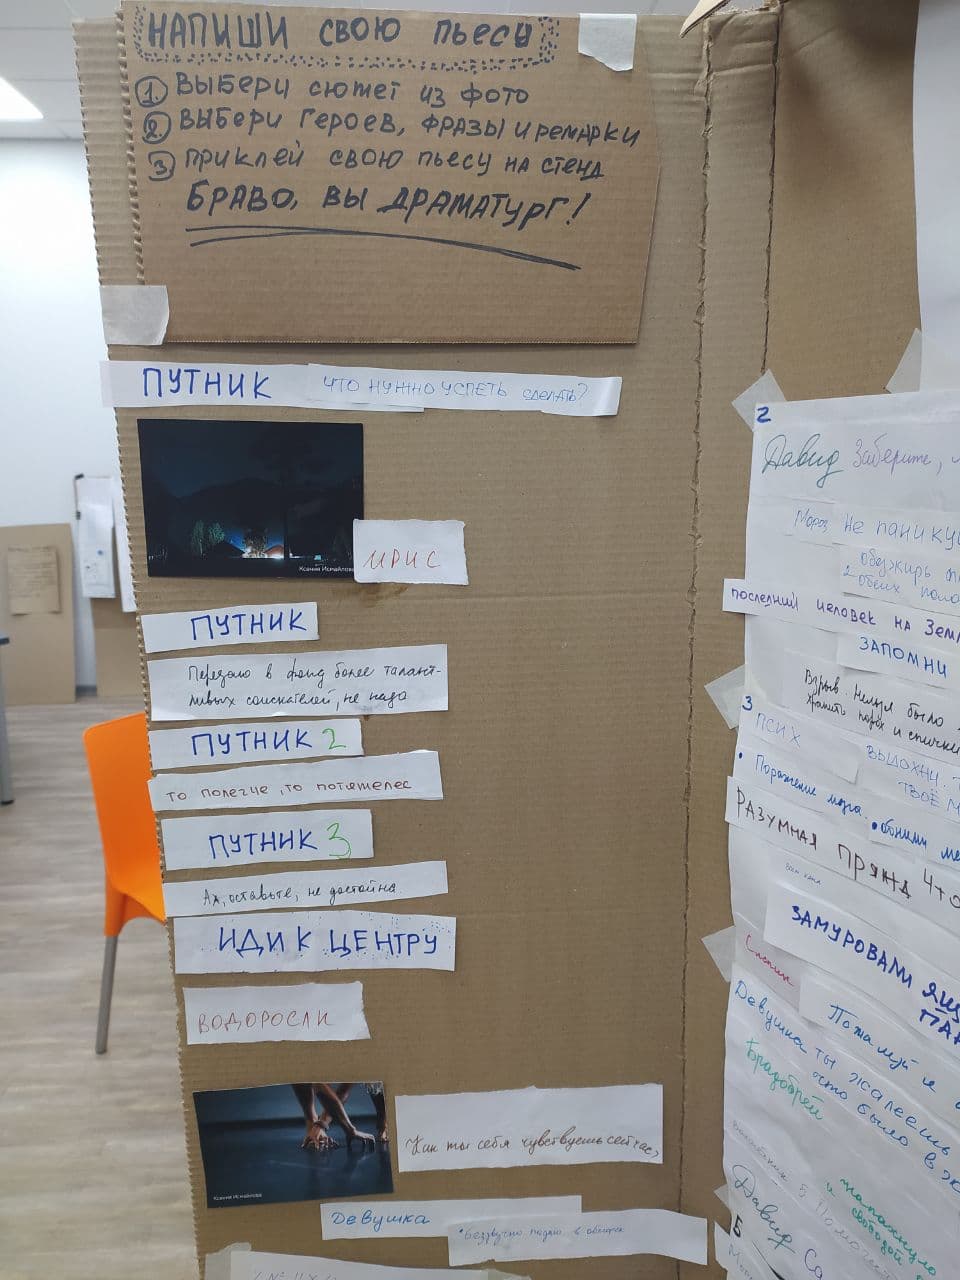 НАПИШИ СВОЮ ПЬЕСУ
1. ВЫБЕРИ СЮЖЕТ ИЗ ФОТО
2. ВЫБЕРИ ГЕРОЕВ, ФРАЗЫ И РЕМАРКИ
3. ПРИКЛЕЙ СВОЮ ПЬЕСУ НА СТЕНД
БРАВО, ВЫ ДРАМАТУРГ!
ПУТНИК ЧТО НУЖНО УСПЕТЬ СДЕЛАТЬ?
Ксения Исмайлова
ИРИС
ПУТНИК
Передаю в фонд более талант-
ливых соискателей, не надо
ПУТНИК 2
то полегче, то потяжелее
ПУТНИК 3
Ах, оставьте, не достойна
ИДИ К ЦЕНТРУ
ВОДОРОСЛИ
Ксения Исмайлова
Как ты себя чувствуешь сейчас?
Девушка
• Беззвучно в обморок
2
Давид Заберите,
Мороз Не паникуй
последний человек на Земл
ЗАПОМНИ
Взрыв. Нельзя было
хранить порох и спички
3
ПСИХ
ВЫДОХНИ.
ТВОЁ М
• Поражение мозга.
РАЗУМНАЯ ПРЯЖА Что
ЗАМУРОВАЛИ ЯЩ
Спаси
Девушка ты жалеешь
Брадобрей
запахнуло
и свободой
Давид
5